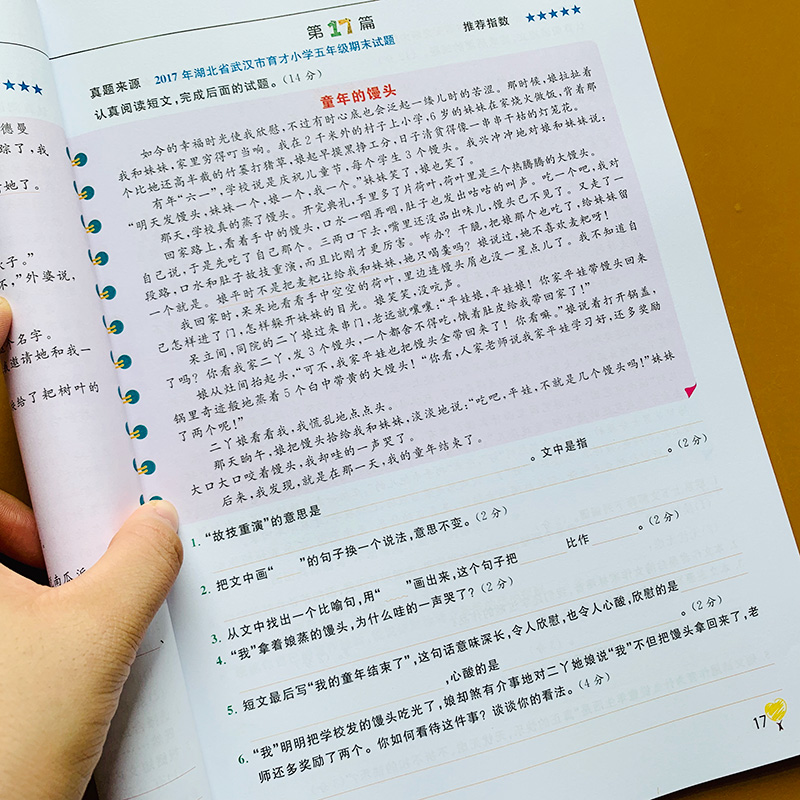 德曼
踪了，我
她了。
”
，”外婆说，
个名字。
邀请她和我一
给了把树叶的
第17篇
真题来源 2017年湖北省武汉市育才小学五年级期末试题
推荐指数
认真阅读短文，完成后面的试题。（14分）
童年的馒头
如今的幸福时光使我欣慰，不过有时心底也会泛起一缕儿时的苦涩。那时候，娘拉扯着
我和妹妹，家里穷得叮当响。我在2千米外的村子上小学，6岁的妹妹在家烧火做饭，背着那
个比她还高半截的竹篓打猪草，娘起早摸黑挣工分，日子清贫得像一串串干枯的灯笼花。
有年“六一”，学校说是庆祝儿童节，每个学生3个馒头。我兴冲冲地对娘和妹妹说：
“明天发馒头，妹妹一个，娘一个，我一个。”妹妹笑了，娘也笑了。
那天，学校真的蒸了馒头。开完典礼，手里多了片荷叶，荷叶里是三个热腾腾的大馒头。
回家路上，看着手中的馒头，口水一咽再咽，肚子也发出咕咕的叫声。吃一个吧，我对
自己说，于是先吃了自己那个。三两口下去，嘴里还没品出味儿，馒头已不见了。又走了一
段路，口水和肚子故技重演，而且比刚才更厉害。咋办？干脆，把娘那个也吃了，给妹妹留
一个就是。娘平时不是把麦粑让给我和妹妹，她只喝羹吗？娘说过，她不喜欢麦粑呀！
我回家时，呆呆地看着手中空空的荷叶，里边连馒头屑也没一星点儿了。我不知道自
己怎样进了门，怎样躲开妹妹的目光。娘笑笑，没吃声。
呆立间，同院的二丫娘过来串门，老远就嚷嚷：“平娃娘，平娃娘！你家平娃带馒头回来
了吗？你看我家二丫，发3个馒头，一个都舍不得吃，饿着肚皮给我带回来了！”
娘从灶间抬起头，“可不，我家平娃也把馒头全带回来了！你看嘛。”娘说着打开锅盖，
锅里奇迹般地蒸着5个白中带黄的大馒头！“你看，人家老师说我家平娃学习好，还多奖励
了两个呢！”
二丫娘看看我，我慌乱地点点头。
那天晌午，娘把馒头拾给我和妹妹，淡淡地说：“吃吧，平娃，不就是几个馒头吗！”妹妹
大口大口咬着馒头，我却哇的一声哭了。
后来，我发现，就是在那一天，我的童年结束了。
1. “故技重演”的意思是 。文中是指 。（2分）
2. 把文中画“ ”的句子换一个说法，意思不变。（2分）
3. 从文中找出一个比喻句，用“ ”画出来，这个句子把 比作 。（2分）
4. “我”拿着娘蒸的馒头，为什么哇的一声哭了？（2分）
5. 短文最后写“我的童年结束了”，这句话意味深长，令人欣慰，也令人心酸，欣慰的是
，心酸的是 。（2分）
6. “我”明明把学校发的馒头吃光了，娘却煞有介事地对二丫她娘说“我”不但把馒头拿回来了，老
师还多奖励了两个。你如何看待这件事？谈谈你的看法。（4分）
17